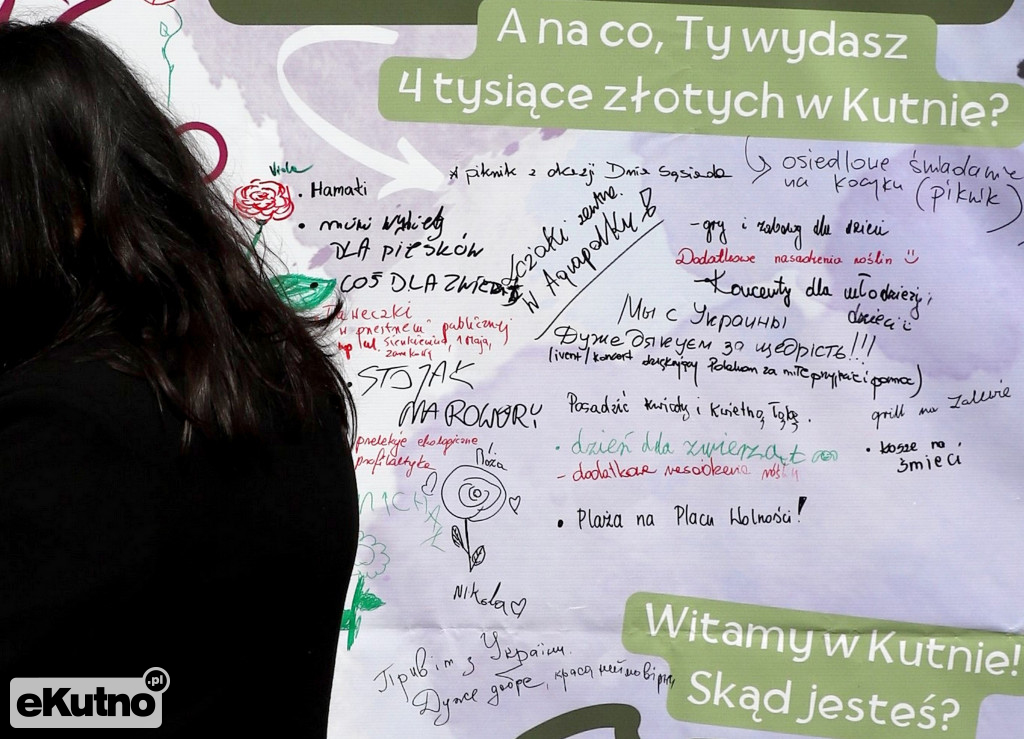 A na co, Ty wydasz
4 tysiące złotych w Kutnie?
Viola
• Hamaki
DLA PIESKÓW
COŚ DLA ZWIERZĄT
Ławeczki
w przestrzeni publicznej
np ul. Sienkiewicza, 1 Maja,
Zamkowa
• STOJAK
NA ROWERY
prelekcje ekologiczne
profilaktyka
MICHAŁ
Róża
Nikola
piknik z okazji Dnia Sąsiada
Leżaki
w Aquaparku
osiedlowe śniadanie
na kocyku (piknik)
- gry i zabawy dla dzieci
Dodatkowe nasadzenia roślin
Koncerty dla młodzieży i
dzieci
Мы с Украины
Дуже дякуєм за щедрість!!!
(ivent/koncert dziękujący Polakom za miłe przyjęcie i pomoc)
Posadzić kwiaty i kwietną łąkę.
grill na Zalewie
• dzień dla zwierząt
• kosze na
śmieci
- dodatkowe nasadzenia roślin
• Plaża na Placu Wolności!
Привіт з України.
Дуже добре, красa неймовірна
Witamy w Kutnie!
Skąd jesteś?
eKutno.pl